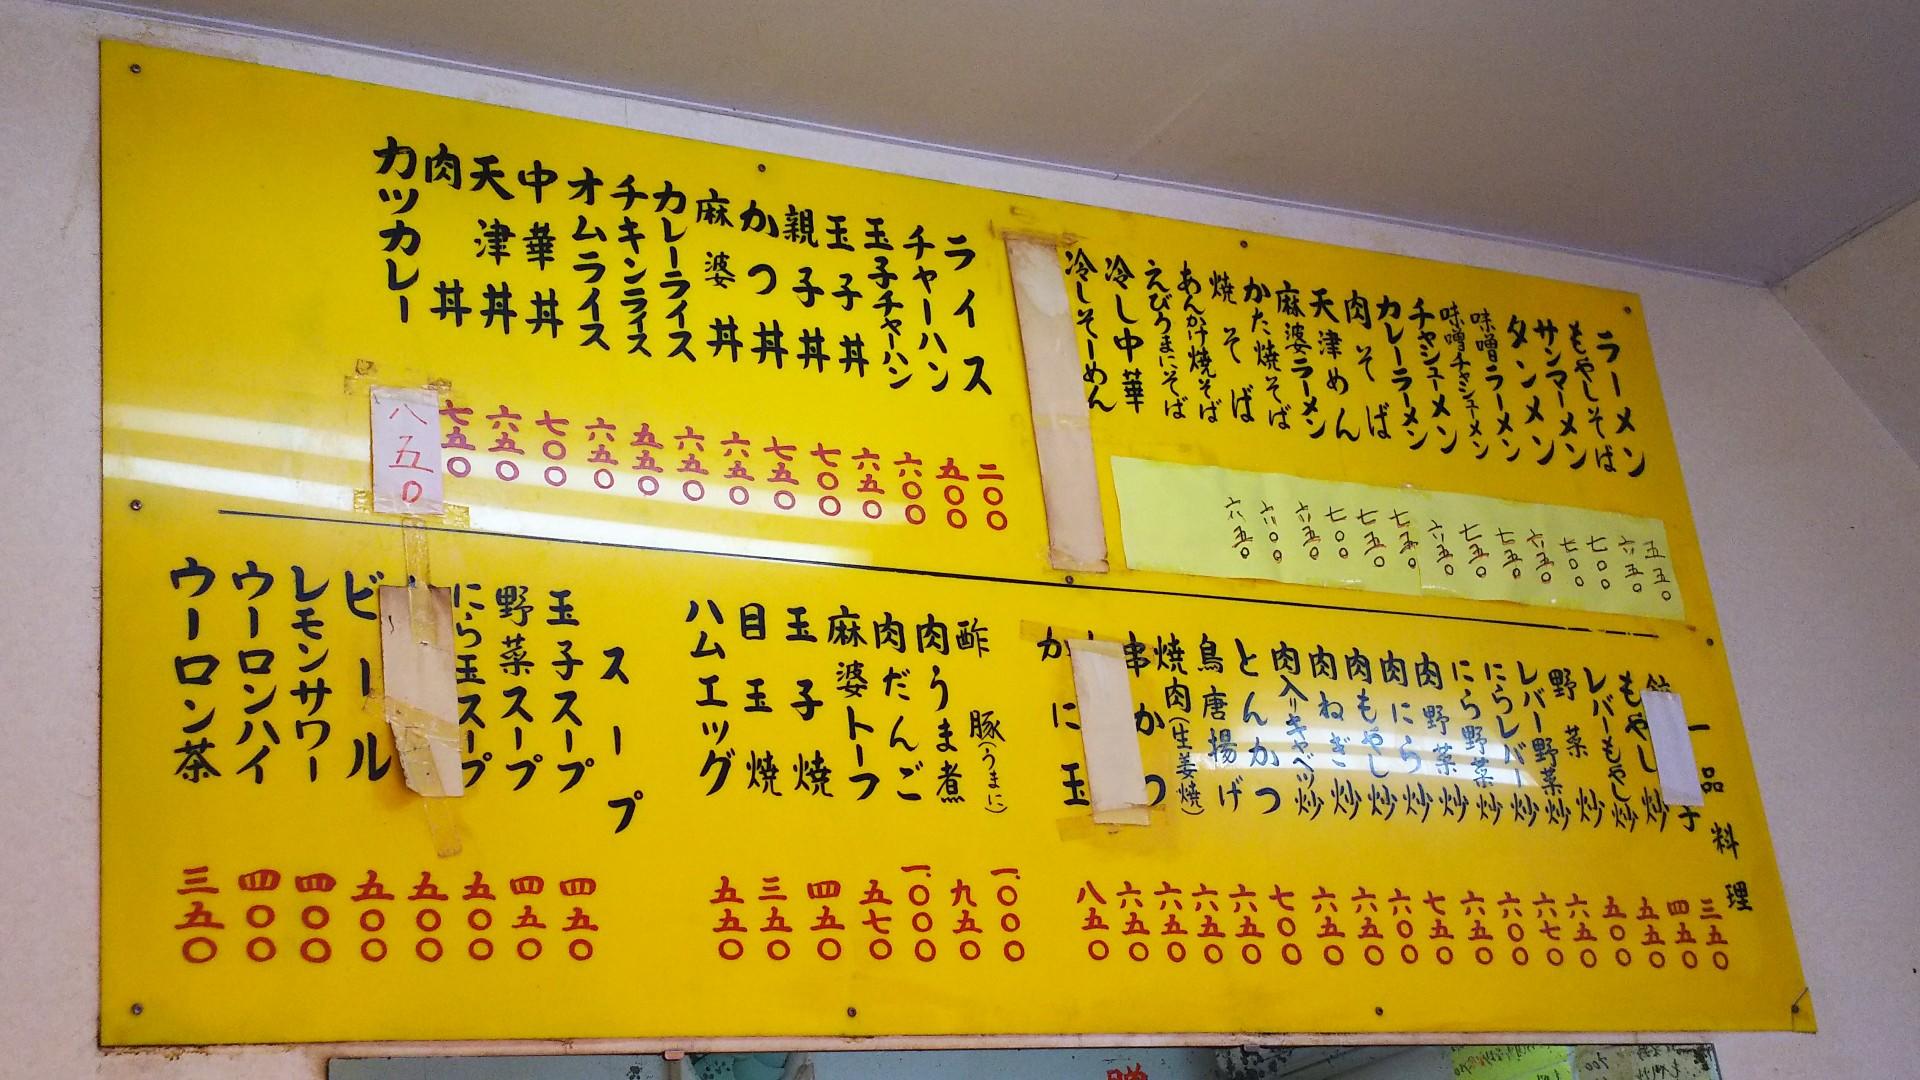 ラーメン 五五〇
もやしそば 六五〇
サンマーメン 七〇〇
タンメン 七〇〇
味噌ラーメン 六五〇
味噌チャシューメン 七五〇
チャシューメン 七五〇
カレーラーメン 六五〇
肉そば 七五〇
天津めん 七五〇
麻婆ラーメン 七〇〇
かた焼そば 六五〇
焼そば 六〇〇
あんかけ焼そば 六五〇
えびうまにそば
冷し中華
冷しそーめん
ライス 二〇〇
チャーハン 五〇〇
玉子チャーハン 六〇〇
玉子丼 六五〇
親子丼 七〇〇
かつ丼 七五〇
麻婆丼 六五〇
カレーライス 六五〇
チキンライス 五五〇
オムライス 六五〇
中華丼 七〇〇
天津丼 六五〇
肉丼 七五〇
カツカレー 八五〇
一品料理
子 三五〇
もやし炒 四五〇
レバーもやし炒 五五〇
野菜炒 五〇〇
レバー野菜炒 六五〇
にらレバー炒 六七〇
にら野菜炒 六〇〇
肉野菜炒 六五〇
肉にら炒 七五〇
肉もやし炒 六〇〇
肉ねぎ炒 六五〇
肉入りキャベツ炒 六五〇
とんかつ 七〇〇
鳥唐揚げ 六五〇
焼肉(生姜焼) 六五〇
串かつ 六五〇
六五〇
かに玉 八五〇
酢豚(うまに) 一、〇〇〇
肉うま煮 九五〇
肉だんご 一、〇〇〇
麻婆トーフ 五七〇
玉子焼 四五〇
目玉焼 三五〇
ハムエッグ 五五〇
スープ
玉子スープ 四五〇
野菜スープ 四五〇
にら玉スープ 五〇〇
五〇〇
ビール 五〇〇
レモンサワー 四〇〇
ウーロンハイ 四〇〇
ウーロン茶 三五〇